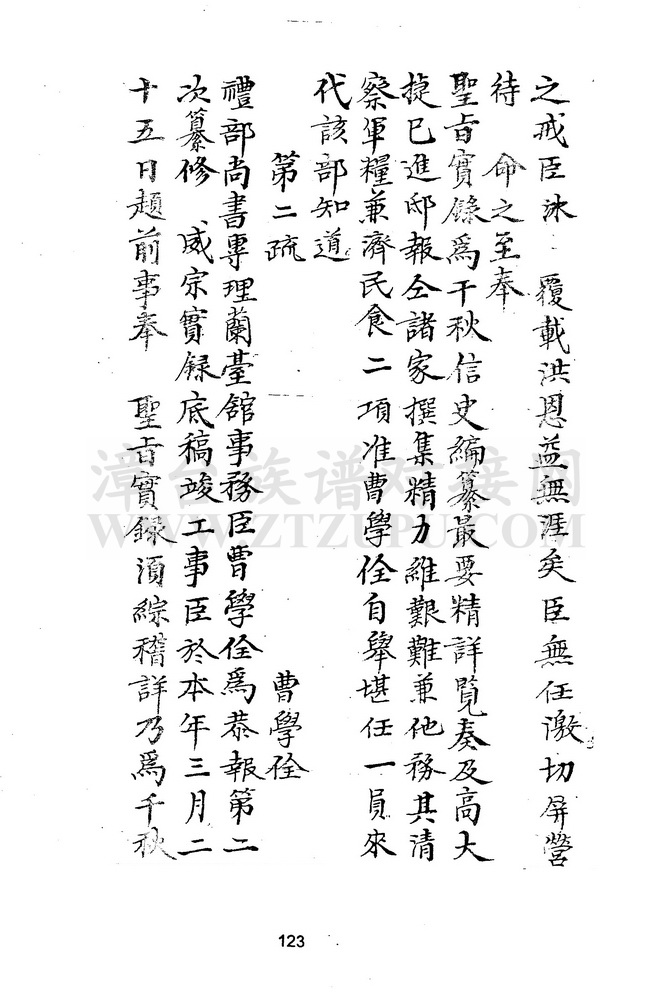 之戒臣沐 覆載洪恩益無涯矣臣無任激切屏營
待 命之至奉
聖旨實錄爲千秋信史編纂最要精詳覽奏及高大
捷已進邸報仝諸家撰集精力維艱難兼他務其清
察軍糧兼濟民食二項准曹學佺自舉堪任一員來
代該部知道
第二疏
曹學佺
禮部尚書專理蘭臺舘事務臣曹學佺爲恭報第二
次纂修 威宗實録底稿竣工事臣於本年三月二
十五日題前事奉 聖旨實録須綜稽詳乃爲千秋
漳台族谱对接网
WWW.ZTZUPU.COM
123